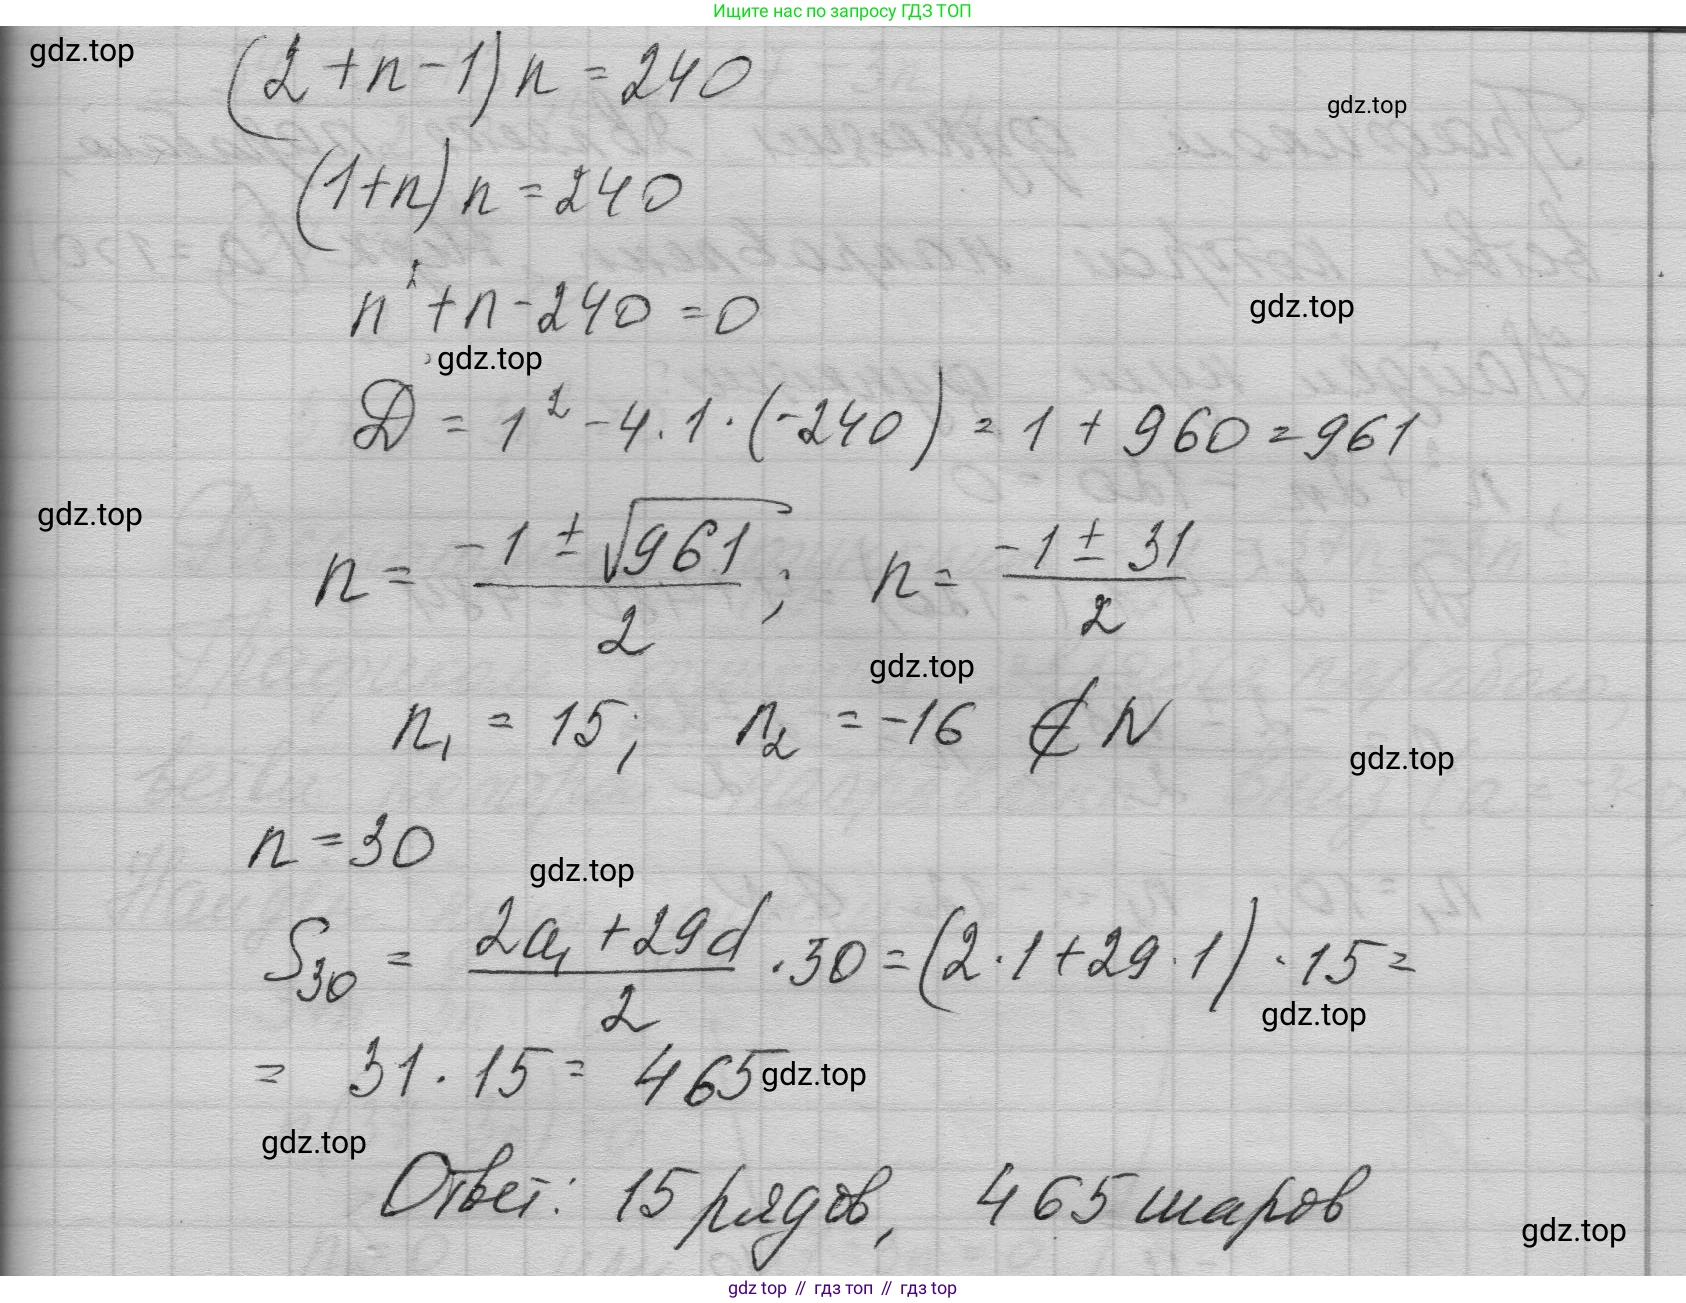 Ищите нас по запросу ГДЗ ТОП
gdz.top
(2+n-1)n=240
gdz.top
(1+n)n=240
n²+n-240=0
gdz.top
gdz.top
D=1²-4·1·(-240)=1+960=961
gdz.top
n=(-1±√961)/2; n=(-1±31)/2
gdz.top
n₁=15; n₂=-16 ∉ N
gdz.top
n=30
gdz.top
S₃₀=(2a₁+29d)/2·30=(2·1+29·1)·15=
gdz.top
=31·15=465
gdz.top
gdz.top
Ответ: 15 рядов, 465 шаров
gdz.top
gdz top // гдз топ // gdz top